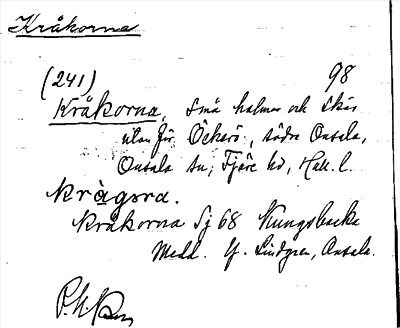 Kråkorna
(241) 98
Kråkorna, små holmar och skär
utanför Öckerö, södra Onsala,
Onsala sn, Fjäre hd, Hall. l.
kràgona.
Kråkorna Sj 68 Kungsbacka
Medd. Lindgren, Onsala.